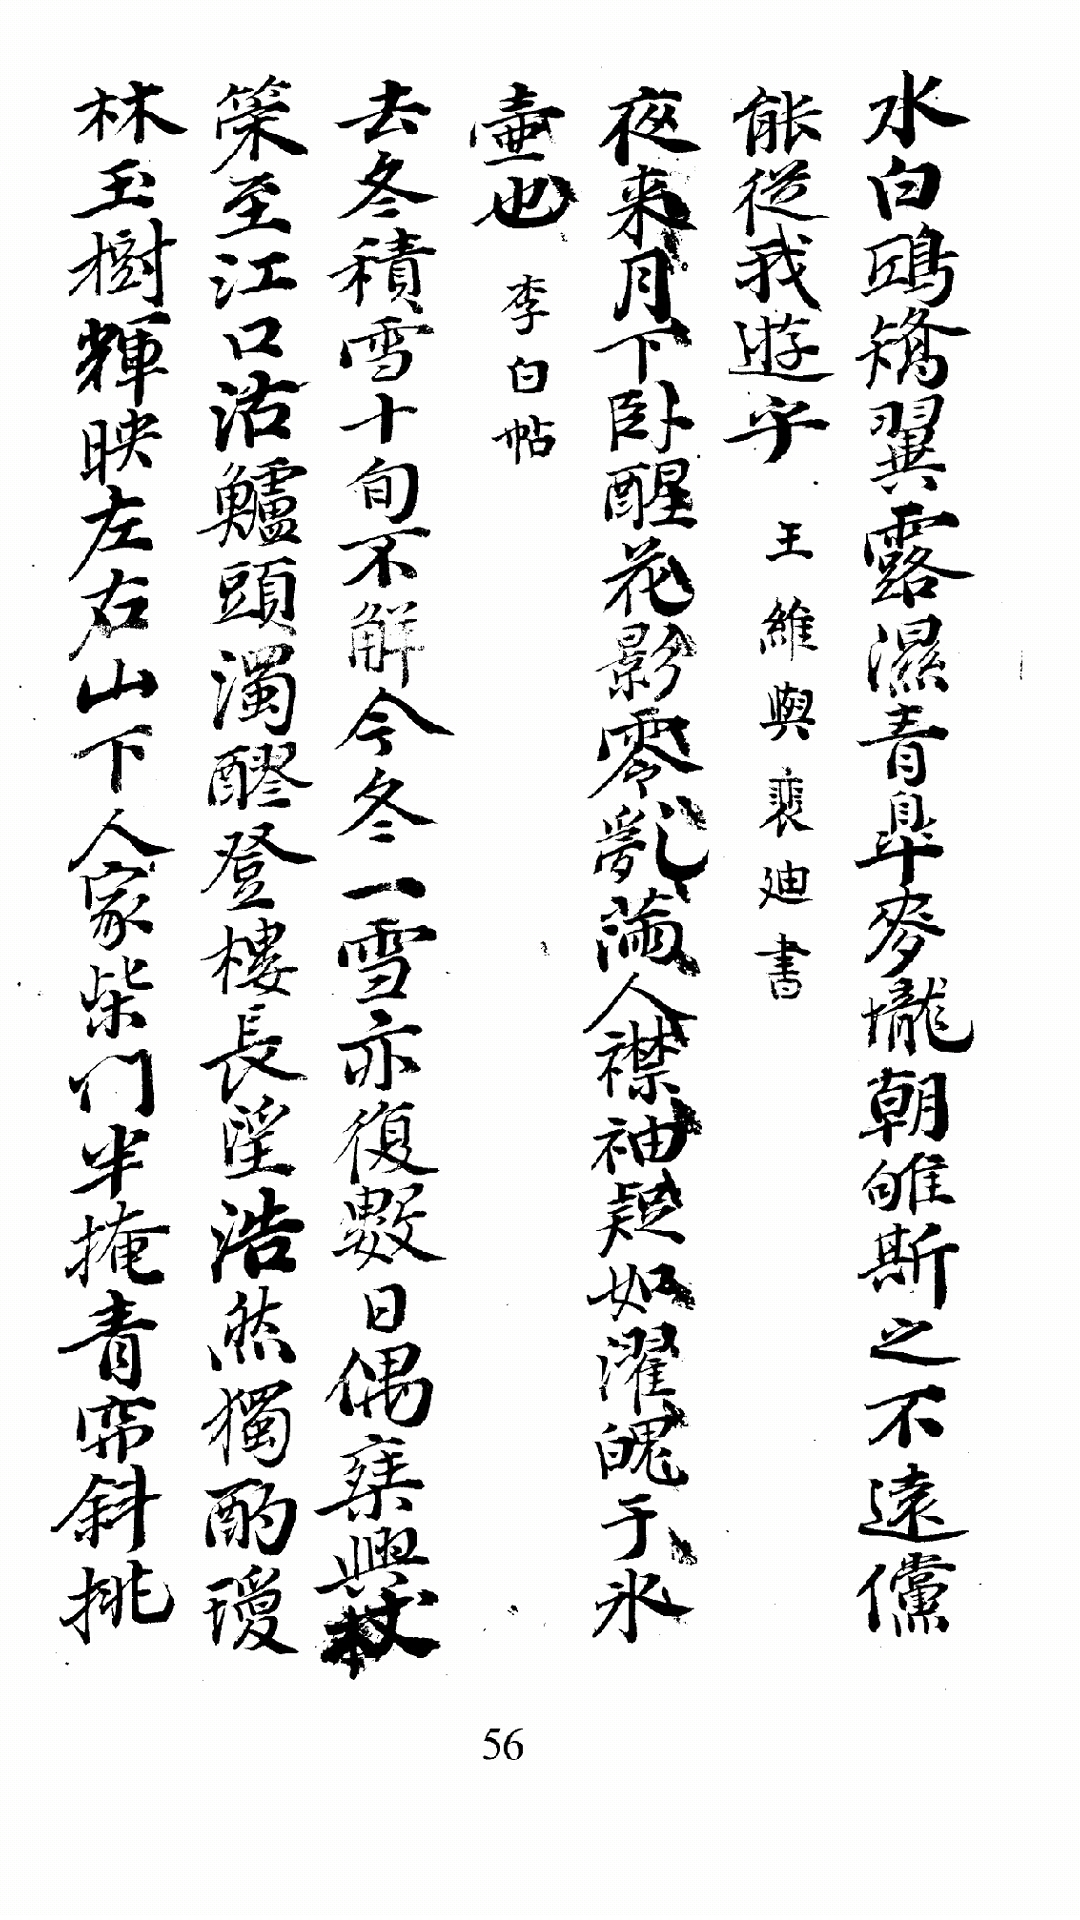 水白鷗矯翼露濕青皐麥壠朝雊斯之不遠儻
能從我遊乎 王維與裴迪書
夜来月下卧醒花影零亂滿人襟袖疑如濯魄于氷
壷也 李白帖
去冬積雪十旬不解今冬一雪亦復數日偶乘興杖
策至江口沽鱸頭濁醪登樓長望浩然獨酌瓊
林玉樹輝映左右山下人家柴门半掩青帘斜挑
56